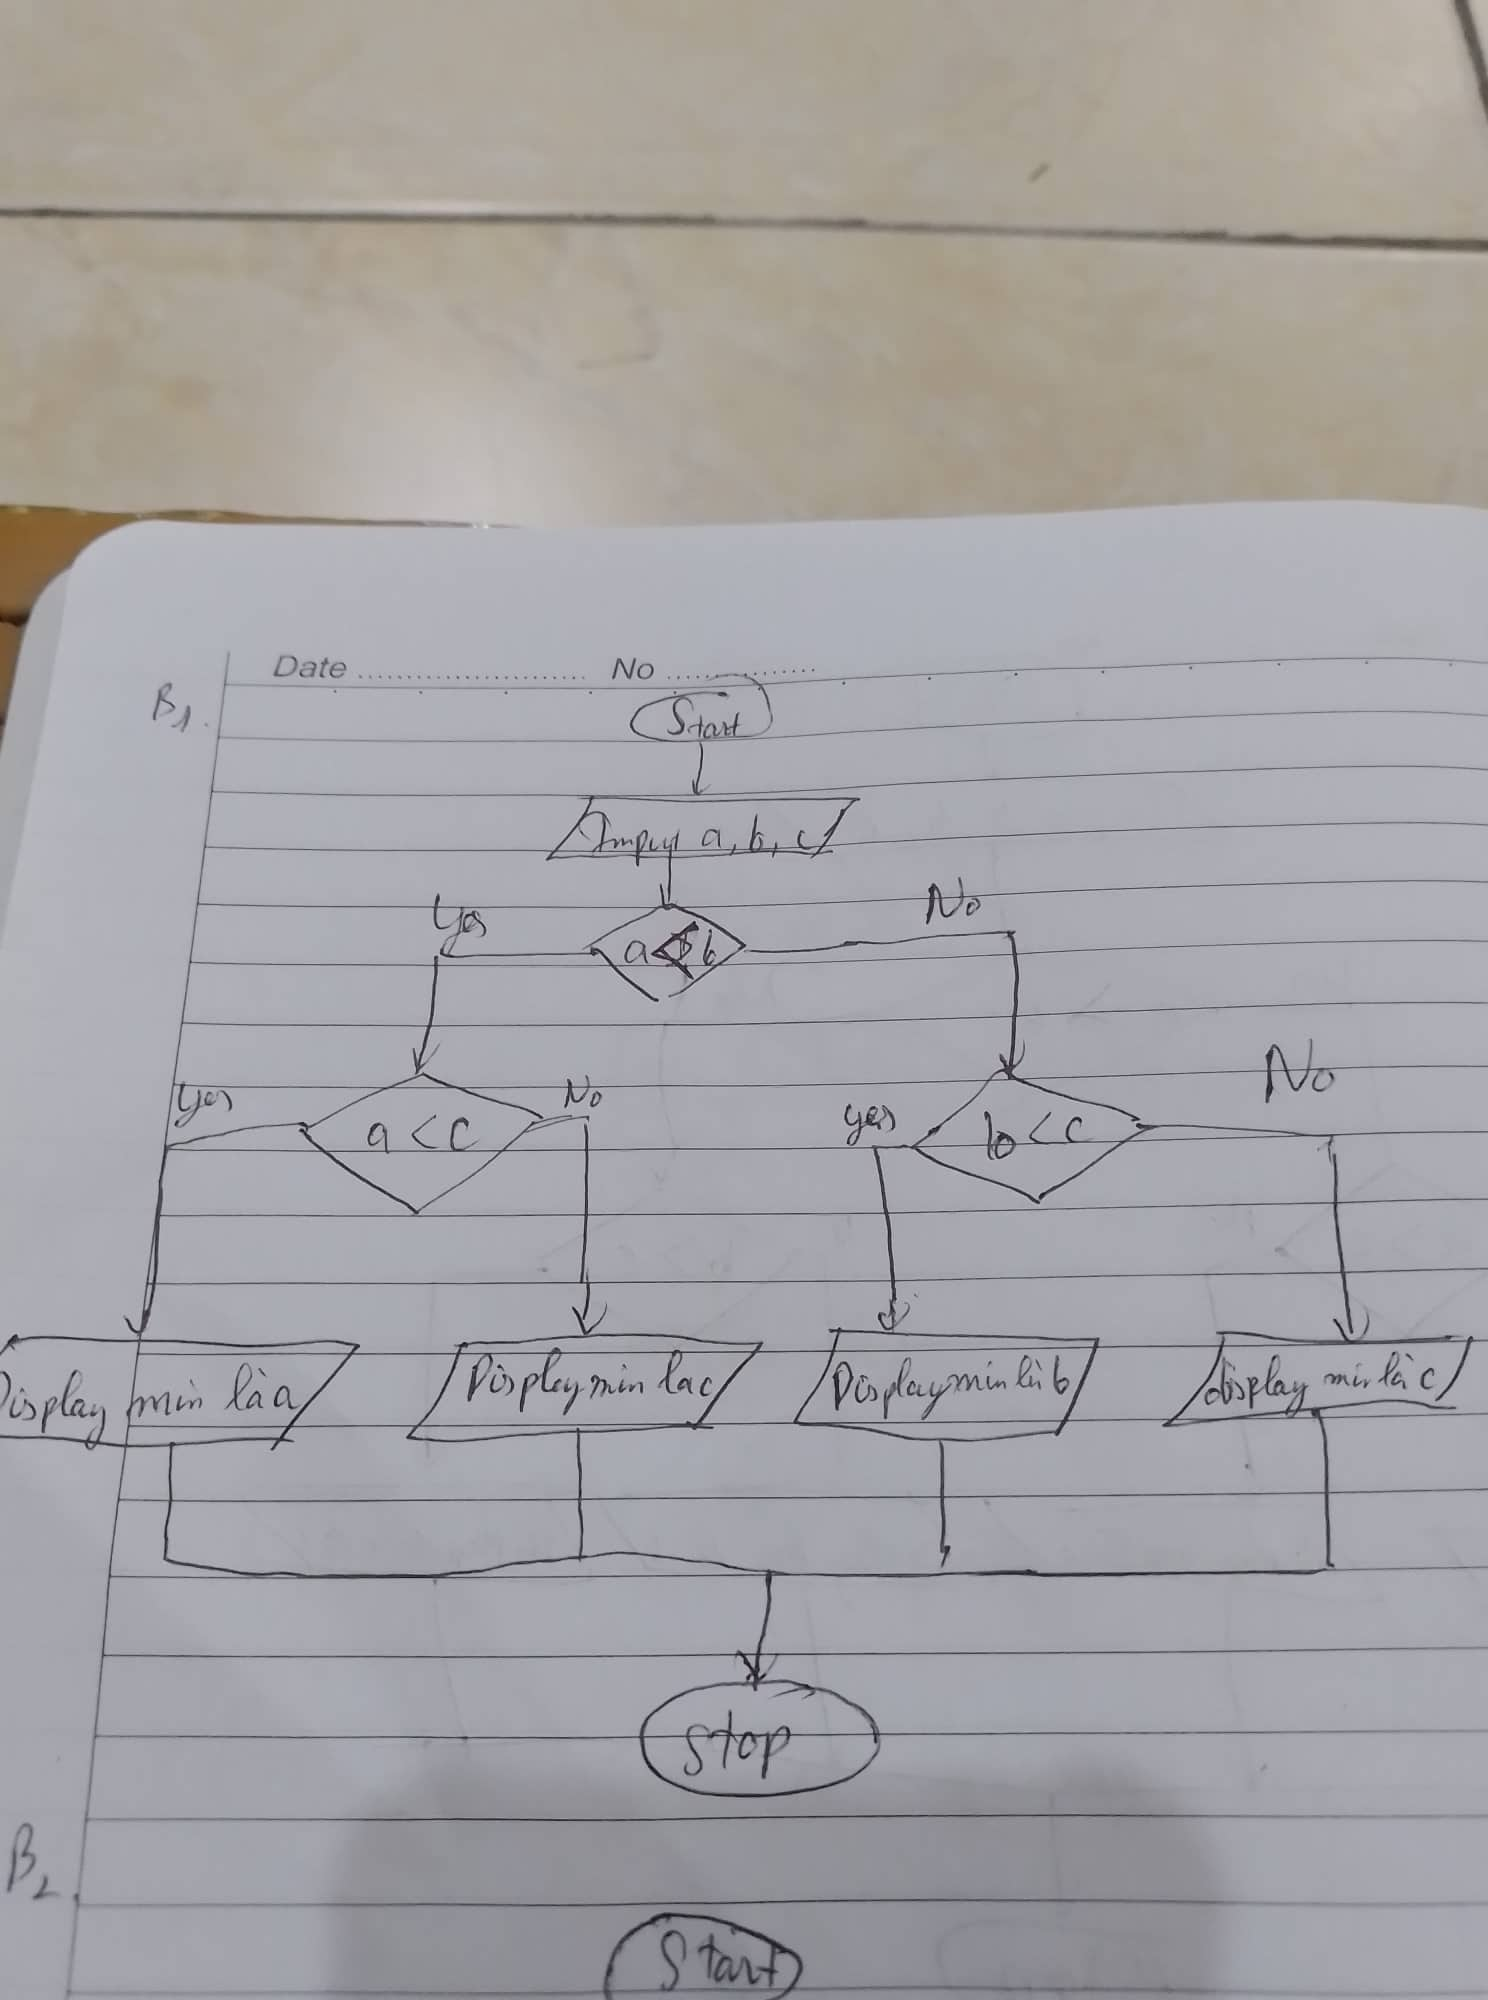 Date No
B1.
Start
Input a, b, c
Yes
No
a < b
Yes
No
yes
No
a < c
b < c
Display min là a
Display min là c
Display min là b
display min là c
Stop
B2.
Start